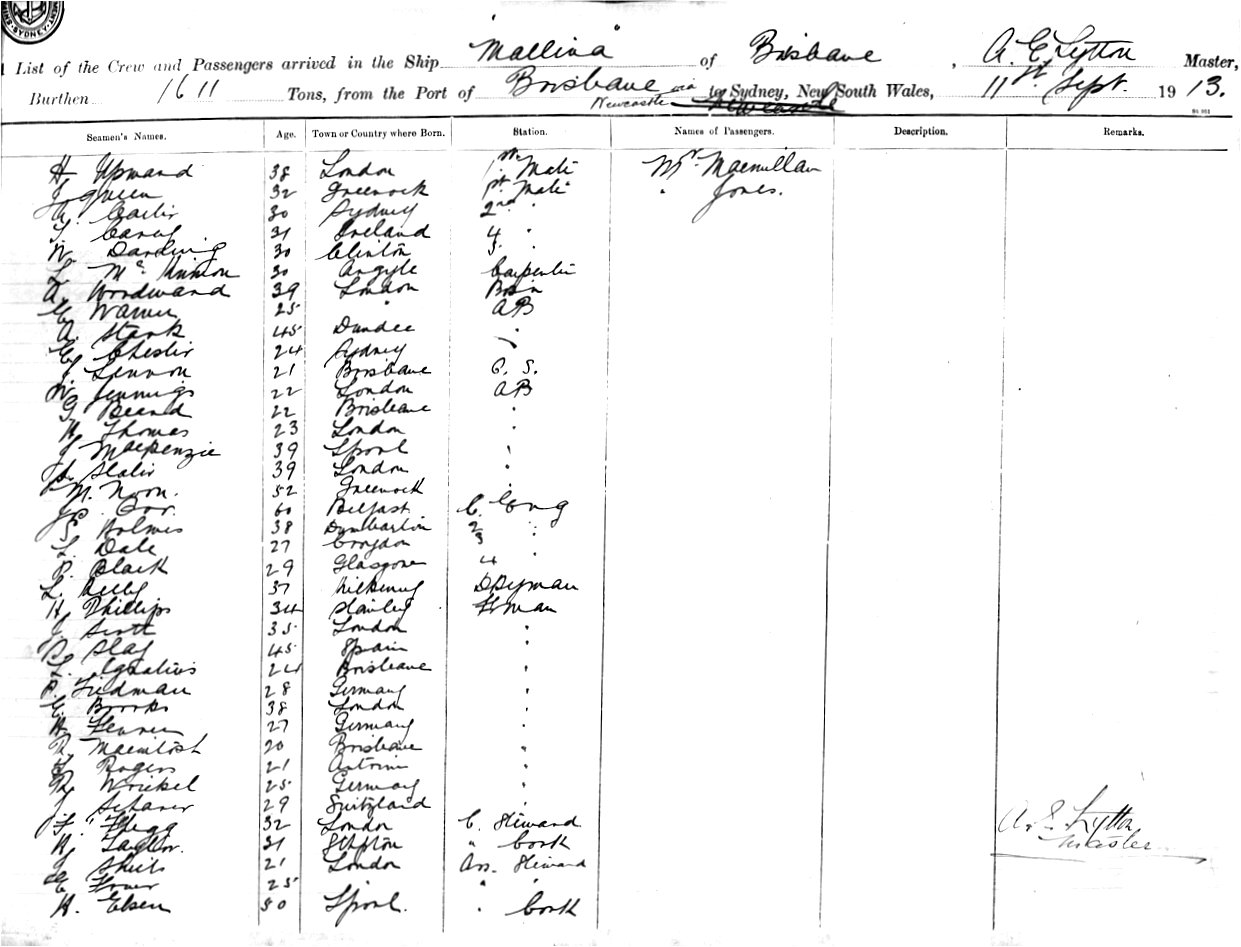 SYDNEY
List of the Crew and Passengers arrived in the Ship "Mallina" of Brisbane, A. E. Lytton Master,
Burthen 1611 Tons, from the Port of Brisbane via Newcastle to Sydney, New South Wales, 11st Sept. 1913.
Seamen's Names. Age. Town or Country where Born. Station. Names of Passengers. Description. Remarks.
H Upward 38 London 1st Mate Mr. Macmillan
J Green 32 Greenock 1st Mate " Jones.
30 Sydney 2nd "
31 Ireland 4 "
W. Darling 30 Clinton 5 "
L. Mc Kinnon 30 Argyle Carpenter
A. Woodward 39 London Bosn
Warner 25 " AB
A. Stark 45 Dundee "
C. Chester 24 Sydney "
J Lennon 21 Brisbane O. S.
W. Jennings 22 London AB
G Beard 22 Brisbane "
H Thomas 23 London "
J Mackenzie 39 Lpool "
Slater 39 London "
M. Noon. 52 Greenock
60 Belfast C. Eng
Holmes 38 Dumbarton 2 "
L. Dale 27 Croydon 3 "
P. Black 29 Glasgow 4
L. Kelly 37 Kilkenny Dkyman
H Phillips 34 Stanley Frman
J Scott 35 London "
45 Spain "
L. Ignatius 24 Brisbane "
P. Friedman 28 Germany "
C. Brooks 38 London "
H. 27 Germany "
R. Macintosh 20 Brisbane "
Rogers 21 Antrim "
R. 25 Germany "
J. Scharer 29 Switzland "
F. Flegg 32 London C. Steward A. E. Lytton
H. Taylor. 31 Sthpton " Cook Master
J 21 London Ass. Steward
25 " "
H. Elsen 50 Lpool. " Cook